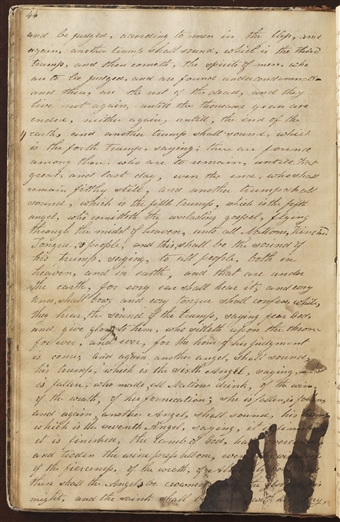 44
and be judged, according to men in the flesh, and
again, another trump shall sound, which is the third
trump, and then cometh, the spirits of men, who
are to be judged, and are found under condemnation
and these, are the rest of the dead, and they
live not again, until the thousand years are
ended, neither again, until, the end of the
earth, and another trump shall sound, which
is the forth trump, saying; there are found
among those who are to remain, untill that
great, and last day, even the end, who shall
remain filthy still, and another trump shall
sound, which is the fifth trump, which is the fifth
angel, who committeth the everlasting gospel, flying
through the midst of heaven, unto all Nations, Kindreds
Tongues, & people, and this, shall be the sound of
his trump, saying, to all people, both in
heaven, and in earth, and that are under
the earth, for every ear shall hear it, and every
knee, shall bow, and every tongue shall confess, while
they hear, the sound of the trump, saying fear God,
and give glory to him, who sitteth upon the throne
for ever, and ever, for the hour of his judgment
is come, and again another angel, shall sound
his trump, which is the sixth Angel, saying,
is fallen, who made, all Nations drink, of the wine
of the wrath, of her fornication; she is fallen, is fallen
and again, another Angel, shall sound, his trump
which is the seventh Angel, saying, it is finished
it is finished, the Lamb of God, hath overcome
and troden the wine press alone, even the wine press
of the fierceness, of the wrath, of
then shall the Angels, be crowned
might, and the saints shall be